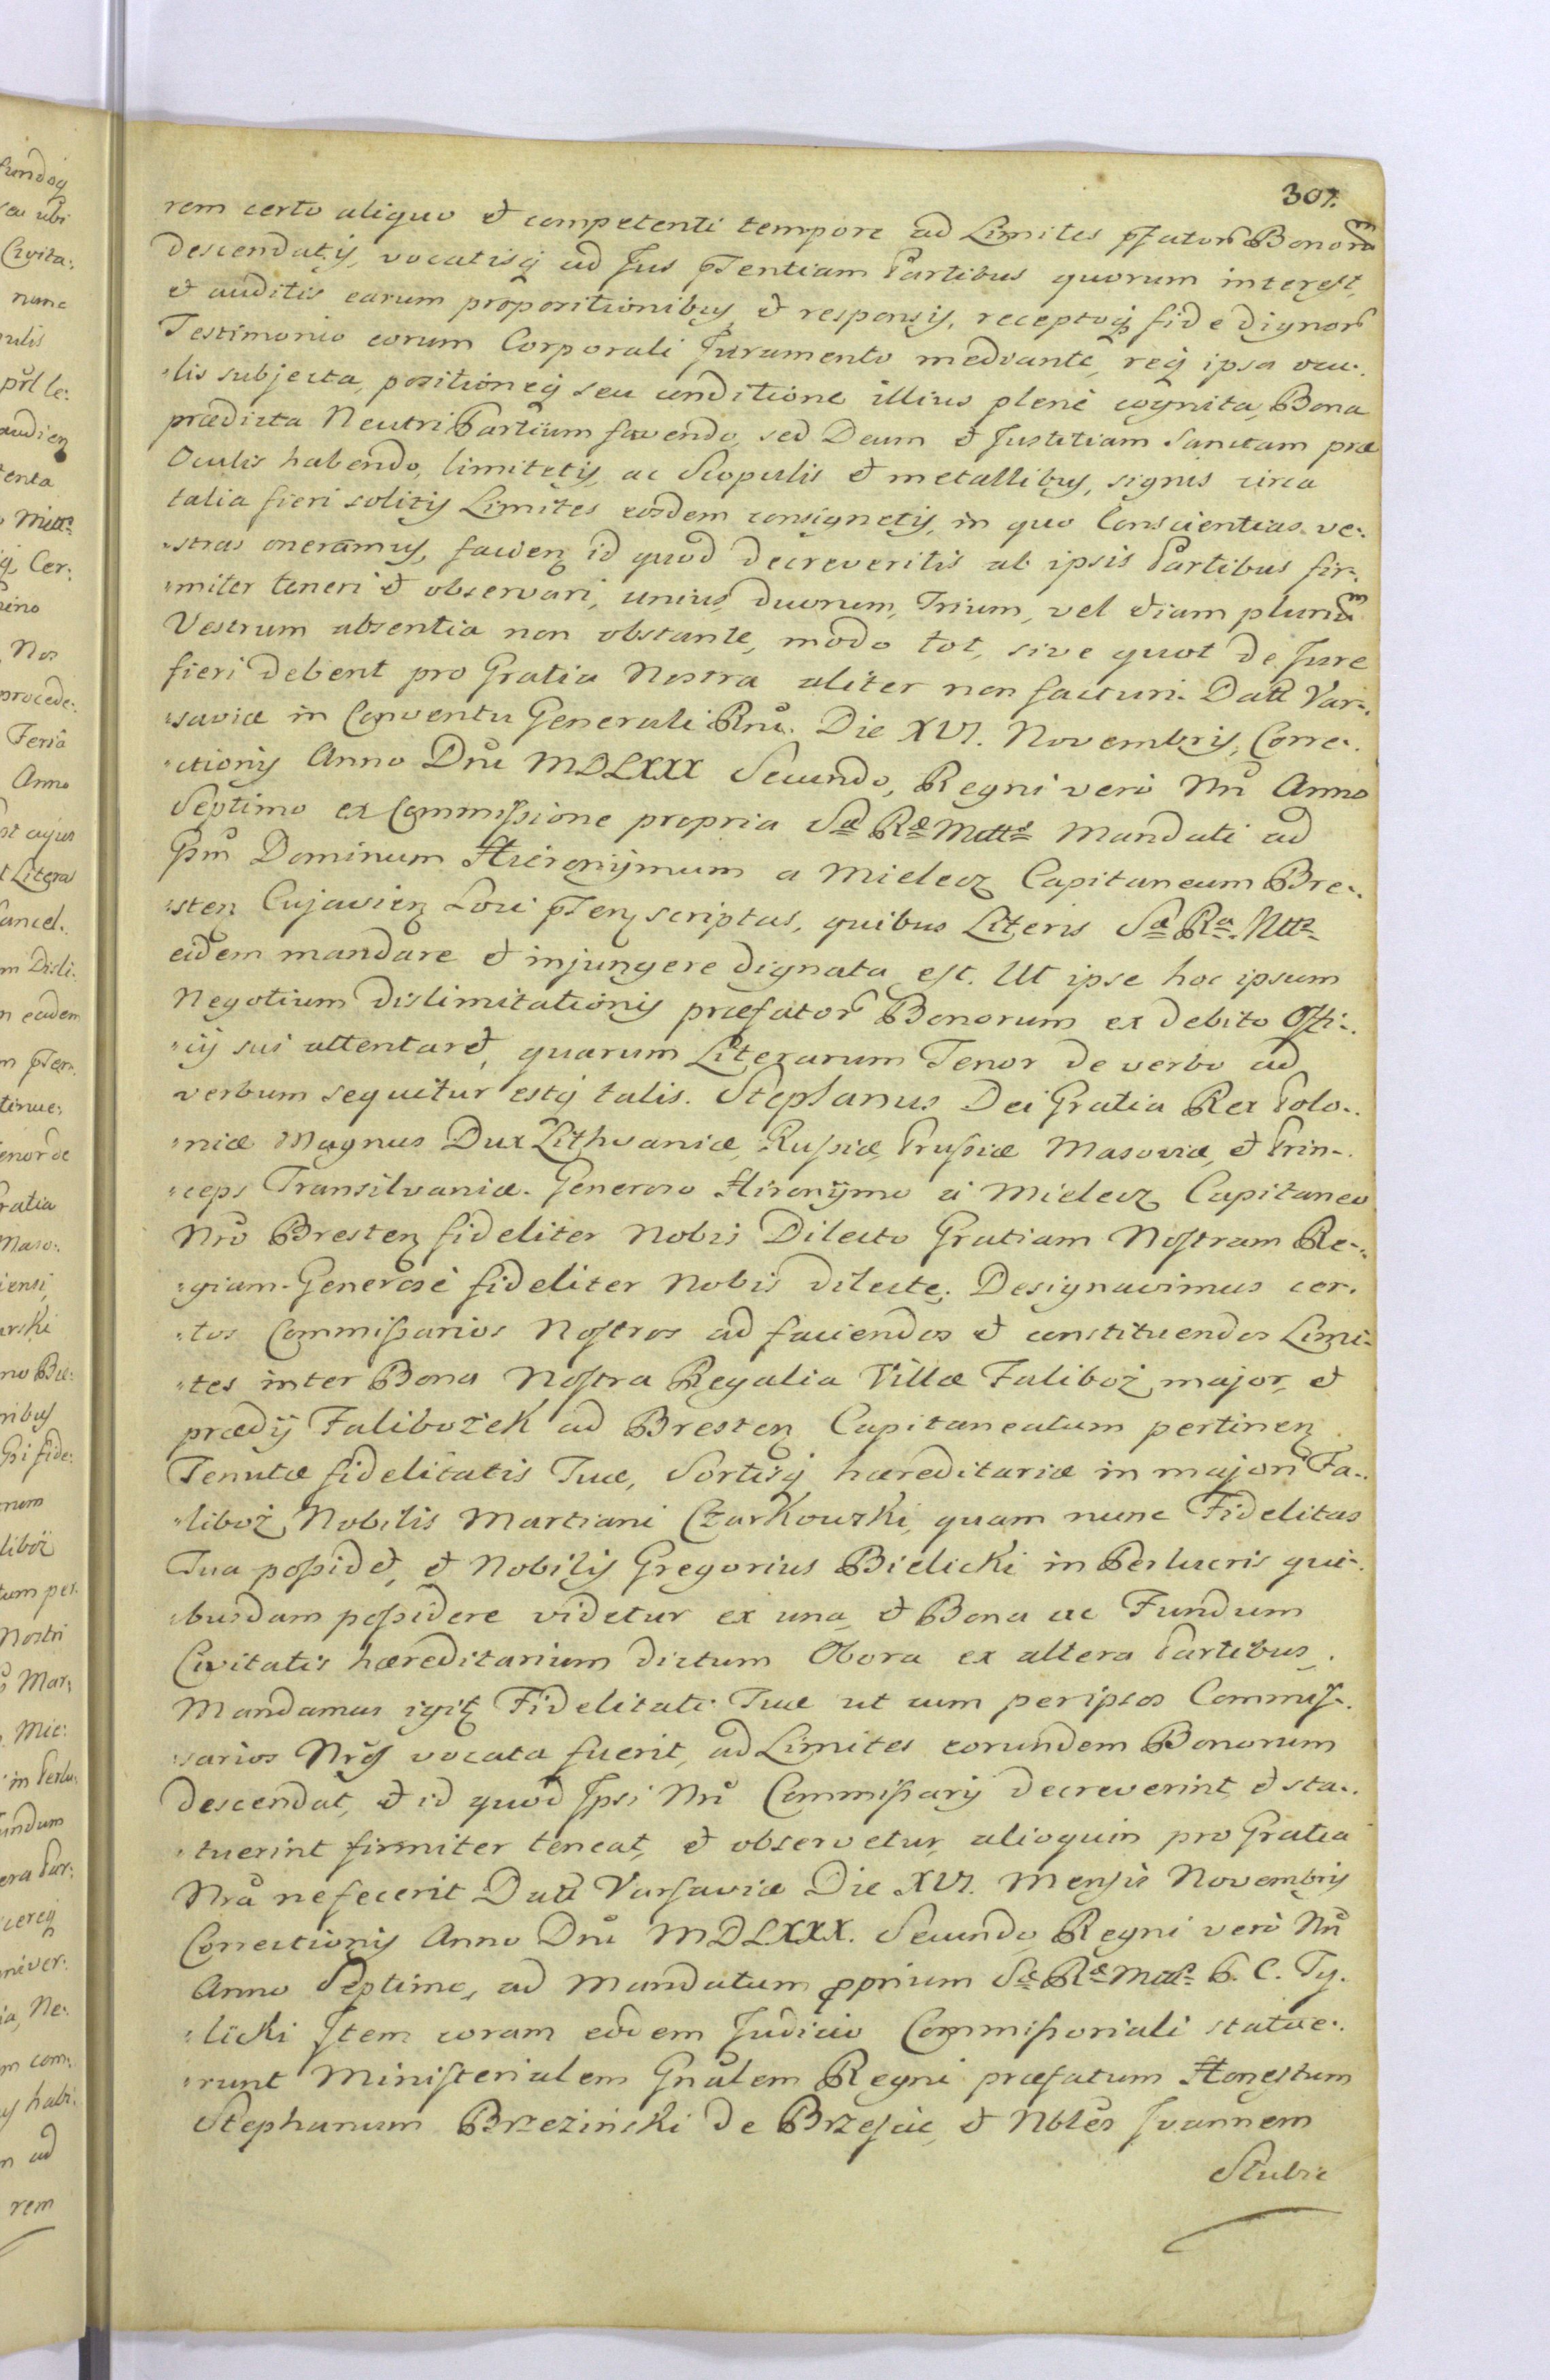 307.
rem certo aliquo et competenti tempore ad Limites pfator Bonorum
descendatis, vocatisq ad Jus pntentiam Partibus quorum interest,
et auditis earum propositionibus et responsis, receptoq fide dignor
Testimonio eorum Corporali Juramento mediante, req ipsa ocu-.
-lis subjecta, positioneq seu conditione illius plenè cognita, Bona
prædicta Neutri Partium favendo, sed Deum et Justitiam Sanctam præ
Oculis habendo, limitetis, ac Scopulis et metallibus, signis circa
talia fieri solitis Limites eosdem consignetis, in quo Conscientias ve:
-stras oneramus, facien id quod decreveritis ab ipsis Partibus fir-.
-miter teneri et observari, unius, duorum, Trium, vel etiam plurium
Vestrum absentia non obstante, modo tot, sive quot de Jure
fieri debent pro Gratia Nostra aliter non facturi. Datt Var-.
-saviæ in Conventu Generali Rnii. Die XVI. Novembris, Corre-.
-ctionis Anno Dni MDLXXX Secundo, Regni verò Nri Anno
Septimo ex Commissione propria Sæ Ræ Mttis Mandati ad
Gsm Dominum Hieronijmum a Mielecz Capitaneum Bre-.
-sten Cujavien Loci pnten scriptas, quibus Literis Sa Ra Mtts
eidem mandare et injungere dignata est. Ut ipse hoc ipsum
Negotium dislimitationis præfator Bonorum ex debito Offi-.
-cij sui attentaret, quarum Literarum Tenor de verbo ad
verbum sequitur estq talis. Stephanus Dei Gratia Rex Polo-.
-niæ Magnus Dux Lithvaniæ, Russiæ, Prussiæ Masoviæ, et Prin-.
-ceps Transilvaniæ. Generoso Hironijmo à Mielecz Capitaneo
Nro Bresten fideliter Nobis Dilecto Gratiam Nostram Re-.
-giam. Generosè fideliter Nobis dilecte. Designavimus cer.
-tos Commissarios Nostros ad faciendos et constituendos Limi-
-tes inter Bona Nostra Regalia Villæ Faliboż major, et
prædij Falibożek ad Bresten Capitaneatum pertinen
Tenutæ fidelitatis Tuæ, Sortisq hæreditariæ in majori Fa-.
-liboż Nobilis Martiani Czarkowski, quam nunc Fidelitas
Tua possidet, et Nobilis Gregorius Bielicki in Perlucris qui-.
-busdam possidere videtur ex una, et Bona ac Fundum
Civitatis hæreditarium dictum Obora ex altera Partibus.
Mandamus igit Fidelitati Tuæ ut cum per ipsos Commis-.
-sarios Nros vocata fuerit, ad Limites eorundem Bonorum
descendat, et id quod Ipsi Nri Commissarij decreverint et sta-.
-tuerint firmiter teneat, et observetur, alioquin pro Gratia
Nra ne fecerit Datt Varsaviæ Die XVI. Mensis Novembris
Correctionis Anno Dni MDLXXX. Secundo, Regni verò Nri
Anno Septimo, ad Mandatum pprium Sæ Ræ Mttis P. C. Ty.
-licki Item coram eodem Judicio Commissoriali statue-.
-runt Ministerialem Gnalem Regni præfatum Honestum
Stephanum Brzezinski de Brzescie, et Nbles Joannem
Stubie